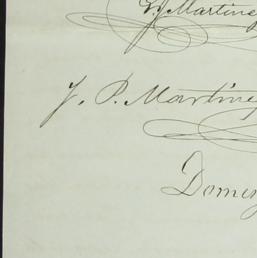 Y Martine
J. P. Martine
Domin